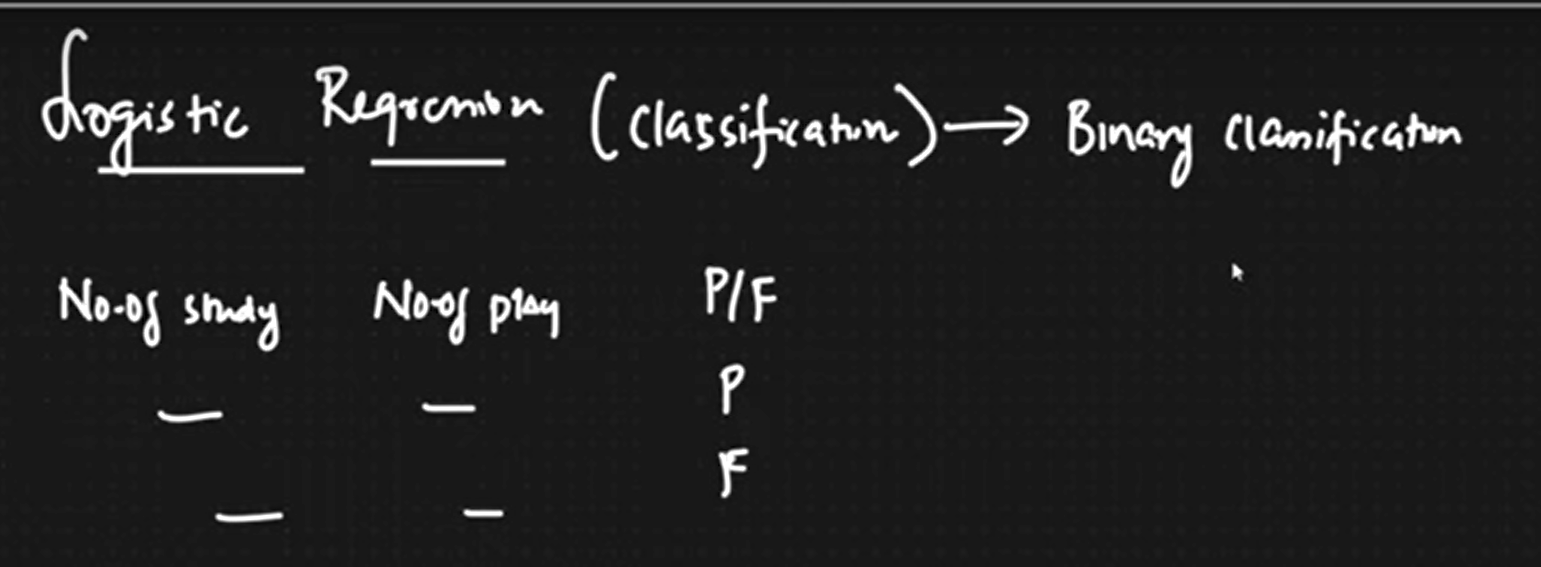 Logistic Regression (Classification) → Binary Classification
No. of study No. of play P/F
— — P
— — F